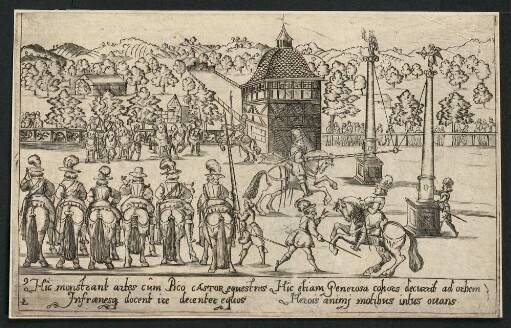 Hic monstrant artes cum Pico cÆstor equestres Hic etiam Generosa cohors decurrit ad orbem
Infrænesq docent ire decenter equos Herois animj motibus intus ovans
2.